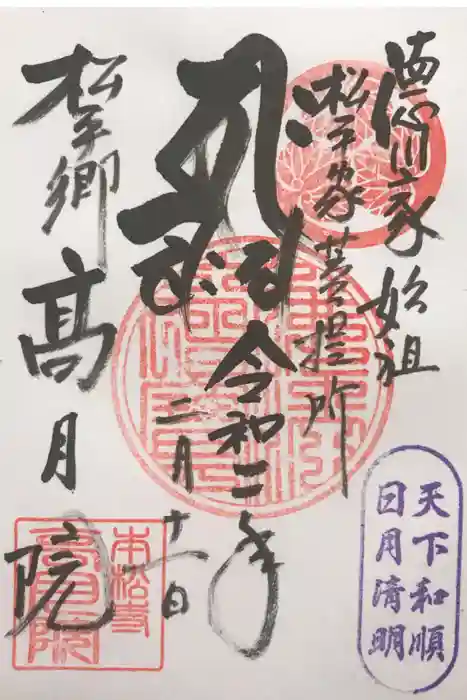 徳川家始祖
松平家菩提所
令和二年
二月
十一日
松平郷
高月院
本松寺
高月院
天下和順
日月清明